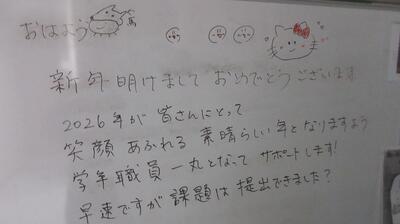 おはよう
馬
新年明けまして おめでとうございます
2026年が 皆さんにとって
笑顔 あふれる 素晴らしい 年となりますよう
学年職員 一丸となって サポートします!
早速ですが 課題は 提出できましたか?